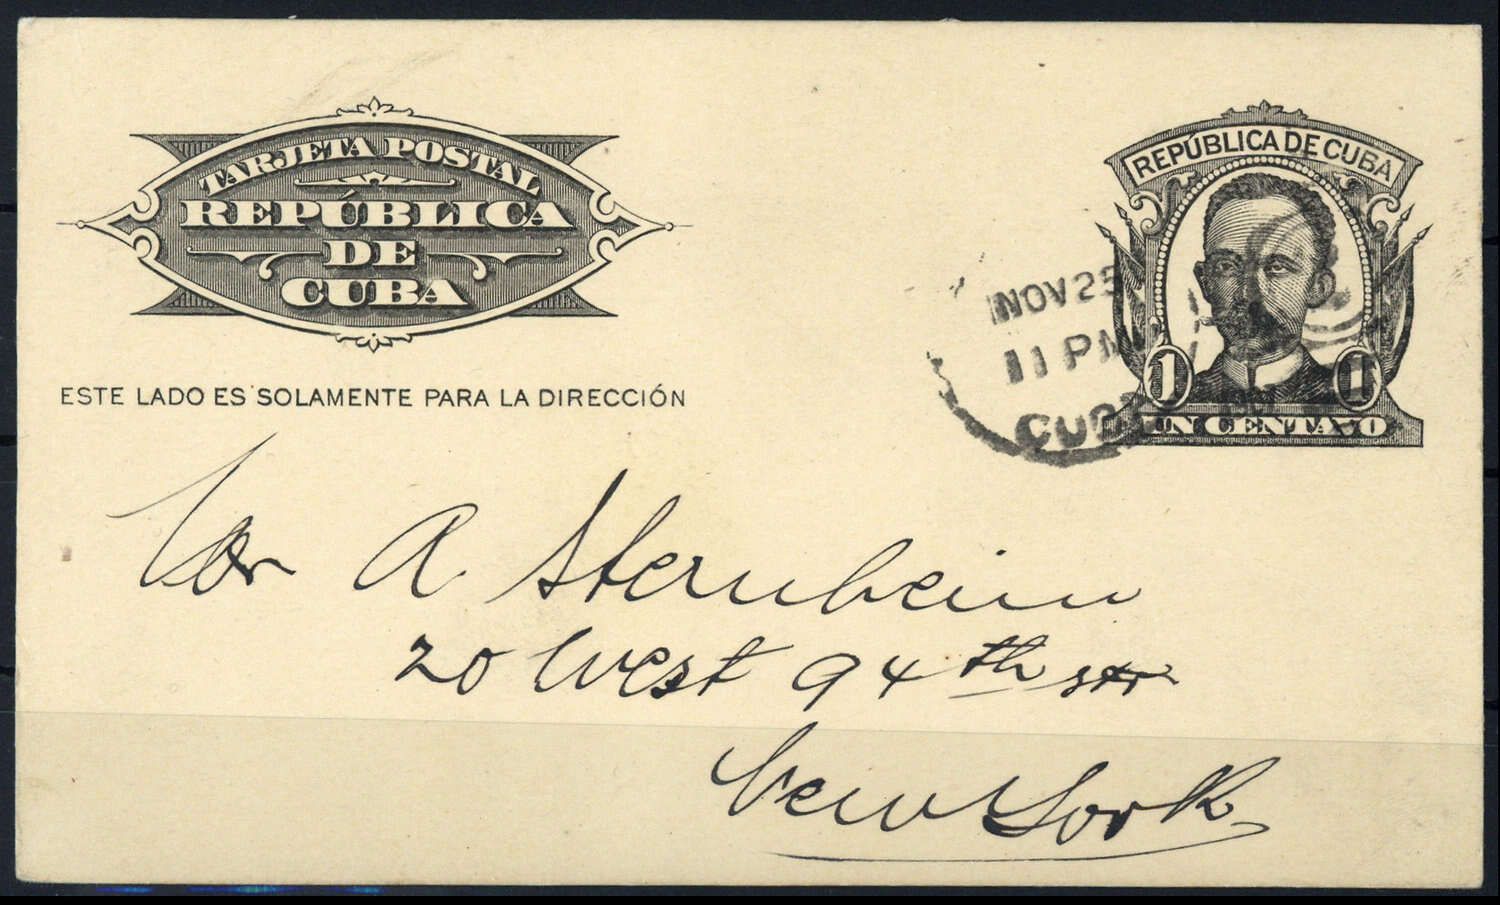 TARJETA POSTAL
REPÚBLICA
DE
CUBA
ESTE LADO ES SOLAMENTE PARA LA DIRECCIÓN
REPÚBLICA DE CUBA
1 1
UN CENTAVO
NOV 25
11 PM
A Sternheim
20 West 94th str
New York